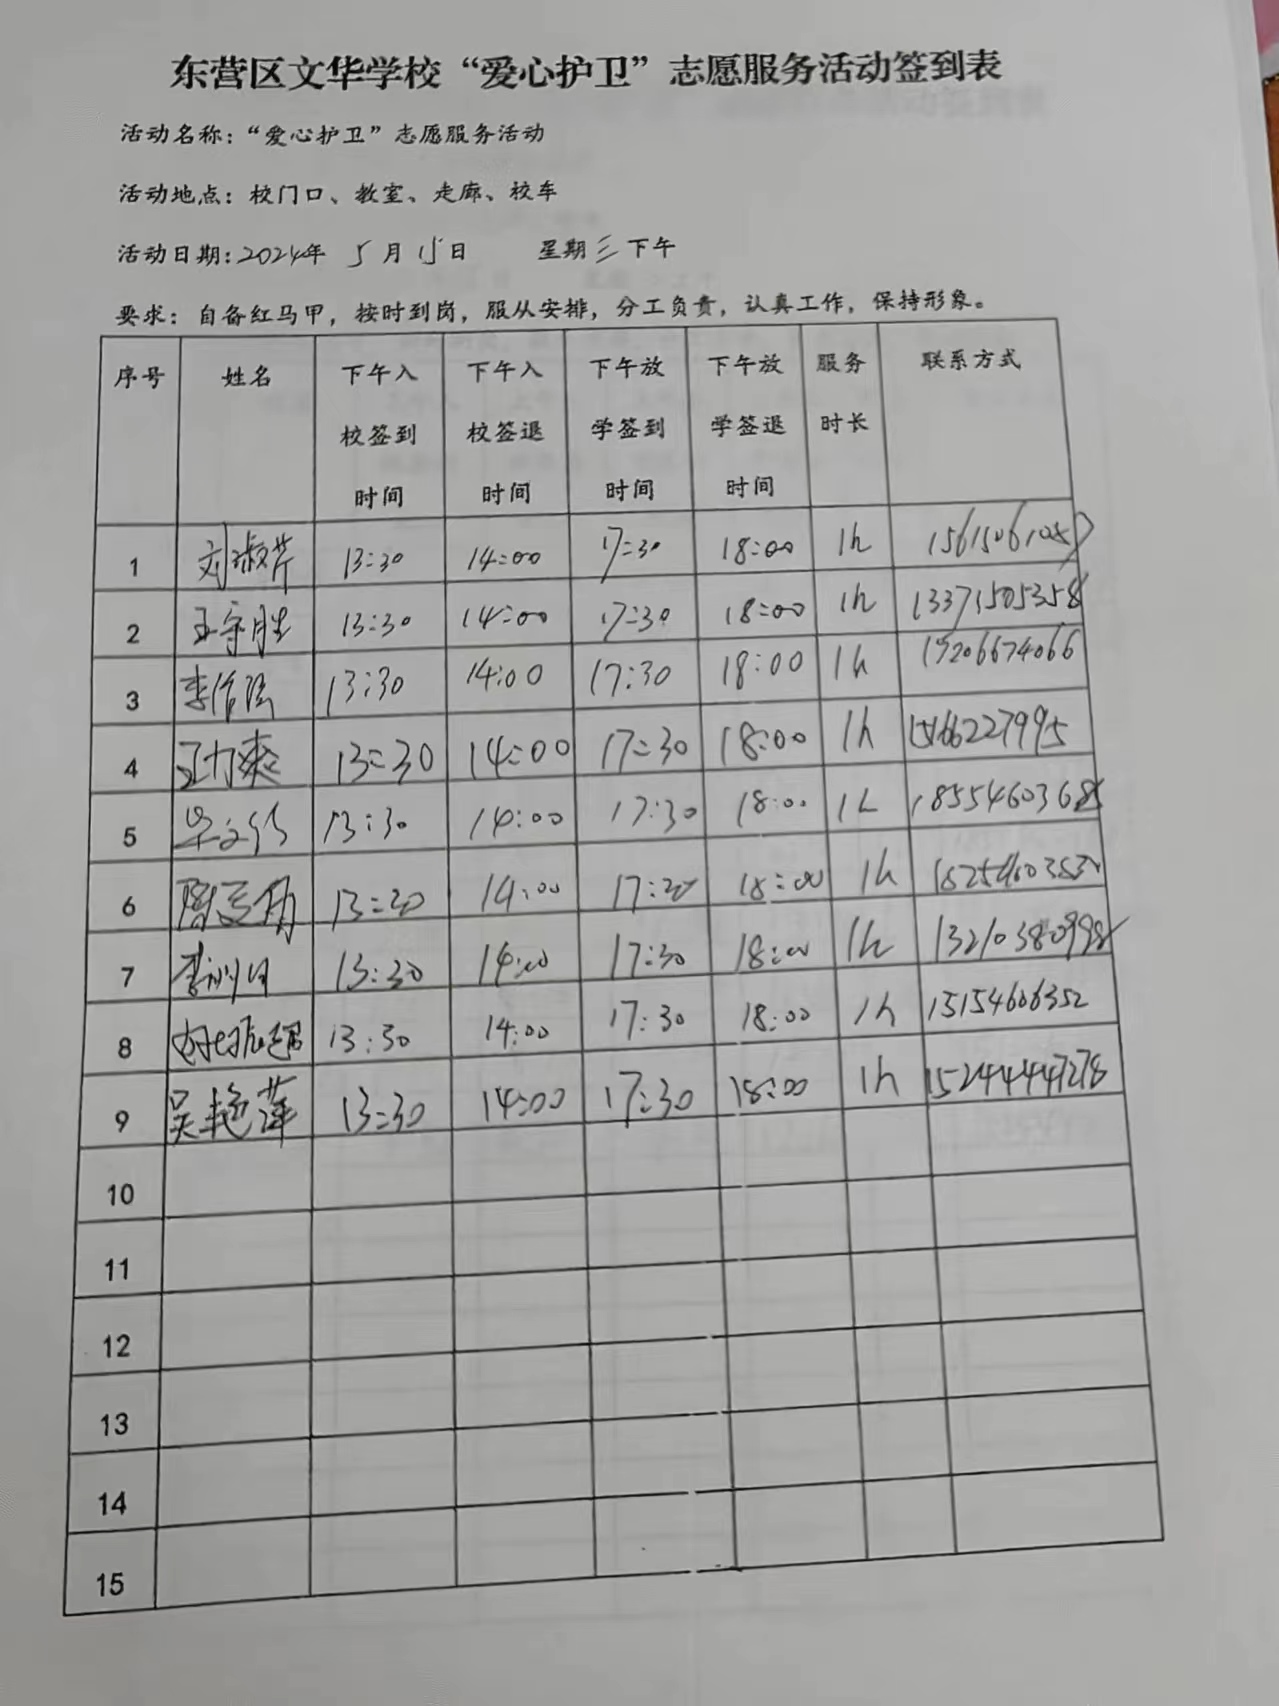 东营区文华学校“爱心护卫”志愿服务活动签到表
活动名称：“爱心护卫”志愿服务活动
活动地点：校门口、教室、走廊、校车
活动日期：2024年 5月15日 星期三下午
要求：自备红马甲，按时到岗，服从安排，分工负责，认真工作，保持形象。
序号 姓名 下午入校签到时间 下午入校签退时间 下午放学签到时间 下午放学签退时间 服务时长 联系方式
1 刘淑芹 13:30 14:00 17:30 18:00 1h
2 王守胜 13:30 14:00 17:30 18:00 1h 13371505358
3 13:30 14:00 17:30 18:00 1h 15206674066
4 王力爽 13:30 14:00 17:30 18:00 1h 15166227995
5 13:30 14:00 17:30 18:00 1h 18554603685
6 13:30 14:00 17:30 18:00 1h
7 13:30 14:00 17:30 18:00 1h 13210380998
8 13:30 14:00 17:30 18:00 1h 15154606352
9 吴艳萍 13:30 14:00 17:30 18:00 1h 15244447278
10
11
12
13
14
15